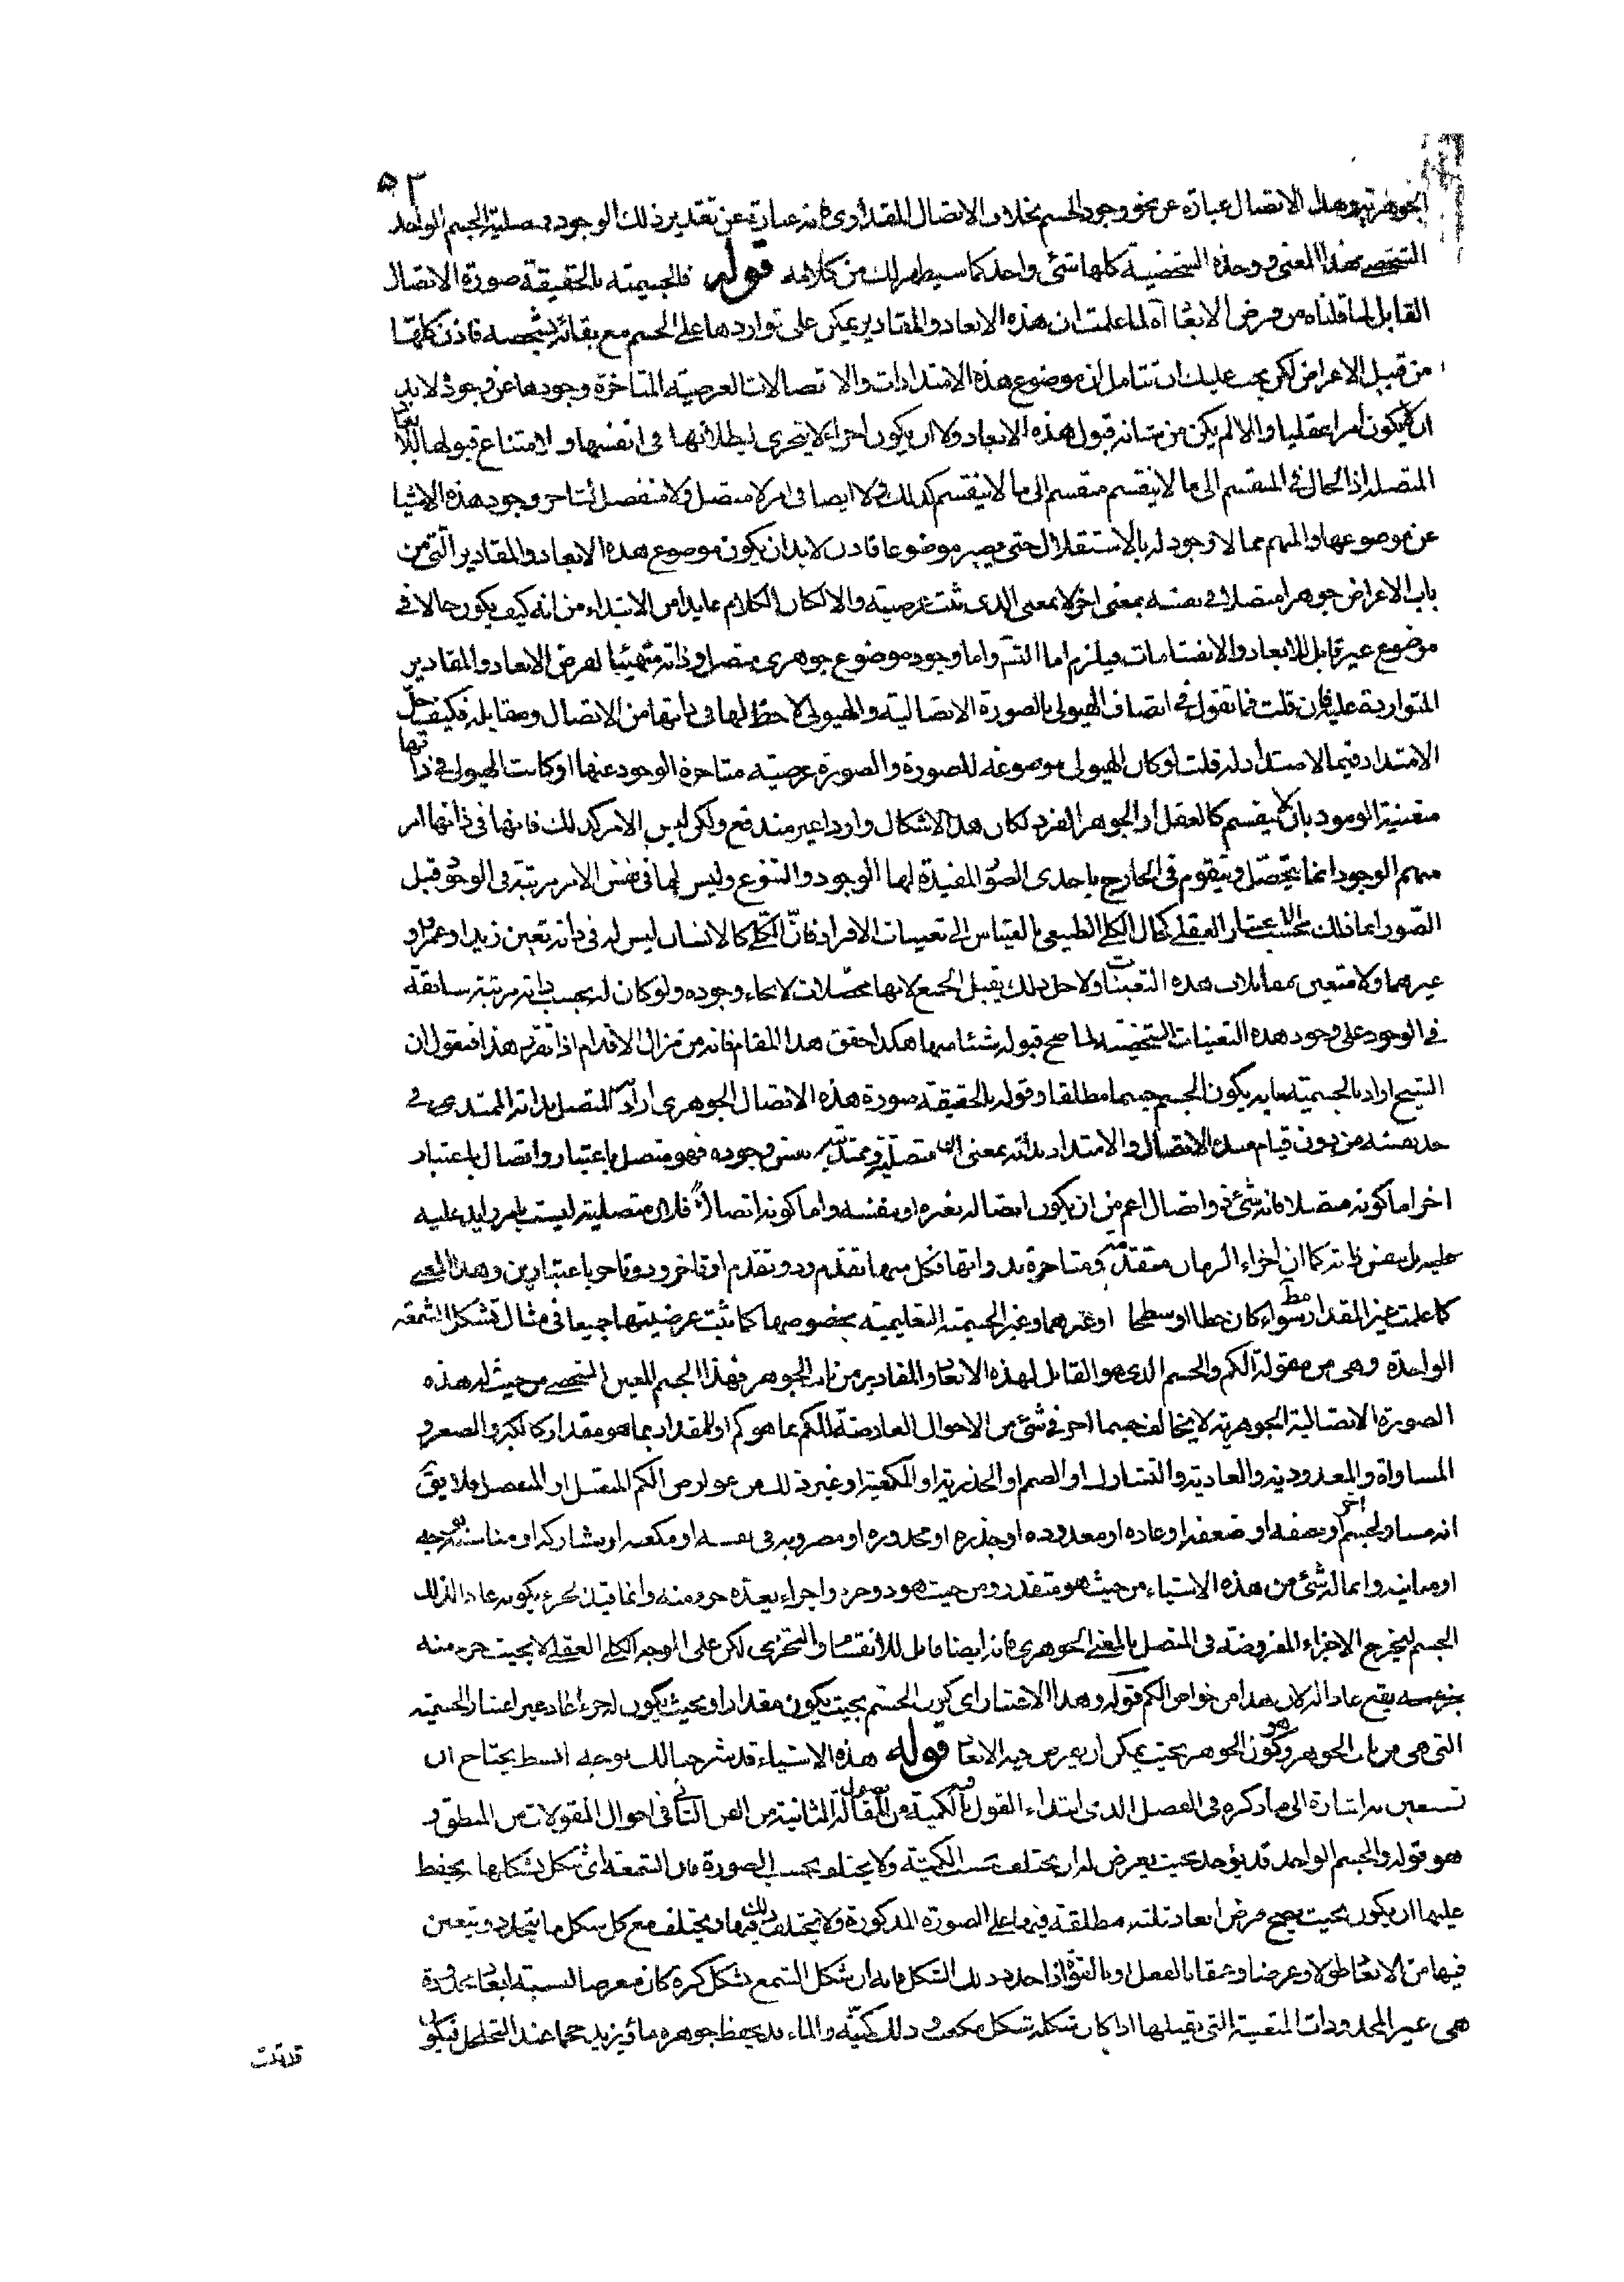 ٥٢
الجوهرية وهذا الاتصال عبارة عن نحو وجود الجسم بخلاف الاتصال المقداری فانه عبارة عن تقدير ذلك الوجود ومتصلية الجسم الواحد
الشخصى بهذا المعنى ووحدته الشخصية كلها شئ واحد كما سيظهر لك من كلامه قوله فالجسمية بالحقيقة صورة الاتصال
القابل لما قلناه من فرض الابعاد آه لما علمت ان هذه الابعاد والمقادير يمكن على تواردها على الجسم مع بقائه بشخصه فاذن كلها
من قبيل الاعراض لكن يجب عليك ان تتامل ان موضوع هذه الامتدادات والاتصالات العرضية المتاخرة وجودها عن وجوده لا بد
ان لا يكون امرا عقليا والا لم يكن من شانه قبول هذه الابعاد ولا ان يكون اجزاء لا يتجزى لبطلانها فى انفسها ولامتناع قبولها للابعاد
المتصلة اذ الحال فى المنقسم الى ما لا ينقسم منقسم الى ما لا ينقسم كذلك ولا ايضا فى امر لا متصل ولا منفصل لتاخر وجود هذه الاشيا
عن موضوعها والمبهم مما لا وجود له بالاستقلال حتى يصير موضوعا فاذن لا بد ان يكون موضوع هذه الابعاد والمقادير التى من
باب الاعراض جوهرا متصلا فى نفسه بمعنى اخر لا بمعنى الذى ثبت عرضيته والا لكان الكلام عايدا من الابتداء من انه كيف يكون حالا فى
موضوع غير قابل للابعاد والانقسامات فيلزم اما التسَ واما وجود موضوع جوهرى متصل فى ذاته متهيئا لفرض الابعاد والمقادير
المتواردة عليه فان قلت فما تقول فى اتصاف الهيولى بالصورة الاتصالية والهيولى لا حظ لها فى ذاتها من الاتصال ومقابله فكيف حل
الامتداد فيما لا امتداد له قلت لو كان الهيولى موضوعة للصورة والصورة عرضية متاخرة الوجود عنها او كانت الهيولى فى ذاتها
متعينة الوجود بان لا ينقسم كالعقل او الجوهر الفرد لكان هذا الاشكال واردا غير مندفع ولكن ليس الامر كذلك فانها فى ذاتها امر
مبهم الوجود انما يتحصل ويتقوم فى الخارج باحدى الصور المفيدة لها الوجود والتنوع وليس لها فى نفس الامر مرتبة فى الوجود قبل
الصور انما ذلك بحسب الاعتبار العقلى كحال الكلى الطبيعى بالقياس الى تعينات الافراد فان الكلى كالانسان ليس له فى ذاته تعين زيد او عمرو
غيرهما ولا متعين بمقابلات هذه التعينات ولاجل ذلك يقبل الجميع لانها محصلات لانحاء وجوده ولو كان له بحسب ذاته مرتبة سابقة
فى الوجود على وجود هذه التعينات الشخصية لما صح قبوله شئا منها هكذا حقق هذا المقام فانه من مزال الاقدام اذا تقرر هذا فنقول ان
الشيخ اراد بالجسمية ما به يكون الجسم جسما مطلقا وقوله بالحقيقة صورة هذه الاتصال الجوهرى اراد المتصل بذاته الممتد فى
حد نفسه من دون قيام مبدء الاتصال والامتداد بذاته بمعنى ان متصليته وممتديته نفس وجوده فهو متصل باعتبار واتصال باعتبار
اخر اما كونه متصلا فانه شئ ذو اتصال اعم من ان يكون اتصاله بغيره او بنفسه واما كونه اتصالاً فلان متصليته ليست بامر زايد عليه
عليه بل بنفس ذاته كما ان اجزاء الزمان متقدمة ومتاخرة بذواتها فكل منها تقدم وذو تقدم او تاخر وذو تاخر باعتبارين وهذا المعنى
كما علمت غير المقدار مط سواء كان خطا او سطحا او غيرهما وغير الجسمية التعليمية بخصوصها كما ثبت عرضيتها جميعا فى مثال تشكل الشمعة
الواحدة وهى من مقولة الكم والجسم الذى هو القابل لهذه الابعاد والمقادير من باب الجوهر فهذا الجسم المعين الشخصى من حيث له هذه
الصورة الاتصالية الجوهرية لا يخالف جسما اخر فى شئ من الاحوال العارضة للكم بما هو كم او للمقدار بما هو مقدار كالكبر والصغر و
المساواة والمعدودية والعادية والتشارك او الصمم او الجذرية او المكعبية او غير ذلك من عوارض الكم المتصل او المنفصل فلا يقَ
انه مساو لجسم اخر او نصفه او ضعفه او عاده او معدوده او جذره او مجذوره او مضروبه فى نفسه او مكعبه او مشاركه او مناسبه بوجه
او مباينه وانما له شئ من هذه الاشياء من حيث هو متقدر ومن حيث هو ذو جزء واجزاء يعده جزء منه وانما قيل بجزء يكون عادا لذلك
الجسم ليخرج الاجزاء المفروضة فى المتصل بالمعنى الجوهرى فانه ايضا قابل للانقسام والتجزى لكن على الوجه الكلى العقلى لا بحيث جزء منه
بعينه يقع عادا له لان هذا من خواص الكم قوله وهذا الاعتبار اى كون الجسم بحيث يكون مقدارا وبحيث يكون له جزء عاد غير اعتبار الجسمية
التى هى من باب الجوهر وهو كون الجوهر بحيث يمكن ان يفرض فيه الابعاد قوله هذه الاشياء قد شرحنا لك بوجه ابسط يحتاج ان
تستعين به اشارة الى ما ذكره فى الفصل الذى ابتداء القول فيه بالكمية من فصول المقالة الثانية من الفن الثانى فى احوال المقولات من المنطق و
هو قوله والجسم الواحد قد يؤخذ بحيث يعرض له ان يختلف بحسب الكمية ولا يختلف بحسب الصورة فان الشمعة اى شكل يشكلها يحفظ
عليها ان يكون بحيث يصح فرض ابعاد ثلثة مطلقة فيها على الصورة المذكورة ولا يختلف ذلك فيها ويختلف مع كل شكل ما يتحدد ويتعين
فيها من الابعاد طولا وعرضا وعمقا بالفعل او بالقوة اذا حدد ذلك الشكل فانه ان شكل الشمع بشكل كرة كان معرضا لنسبة ابعاد محدودة
هى غير المحدودات المتعينة التى يقبلها اذا كان شكله شكل مكعب و ذلك كميته والماء قد يحفظ جوهره ماء ويزيد حجما عند التخلخل فيكون
قد ثبت